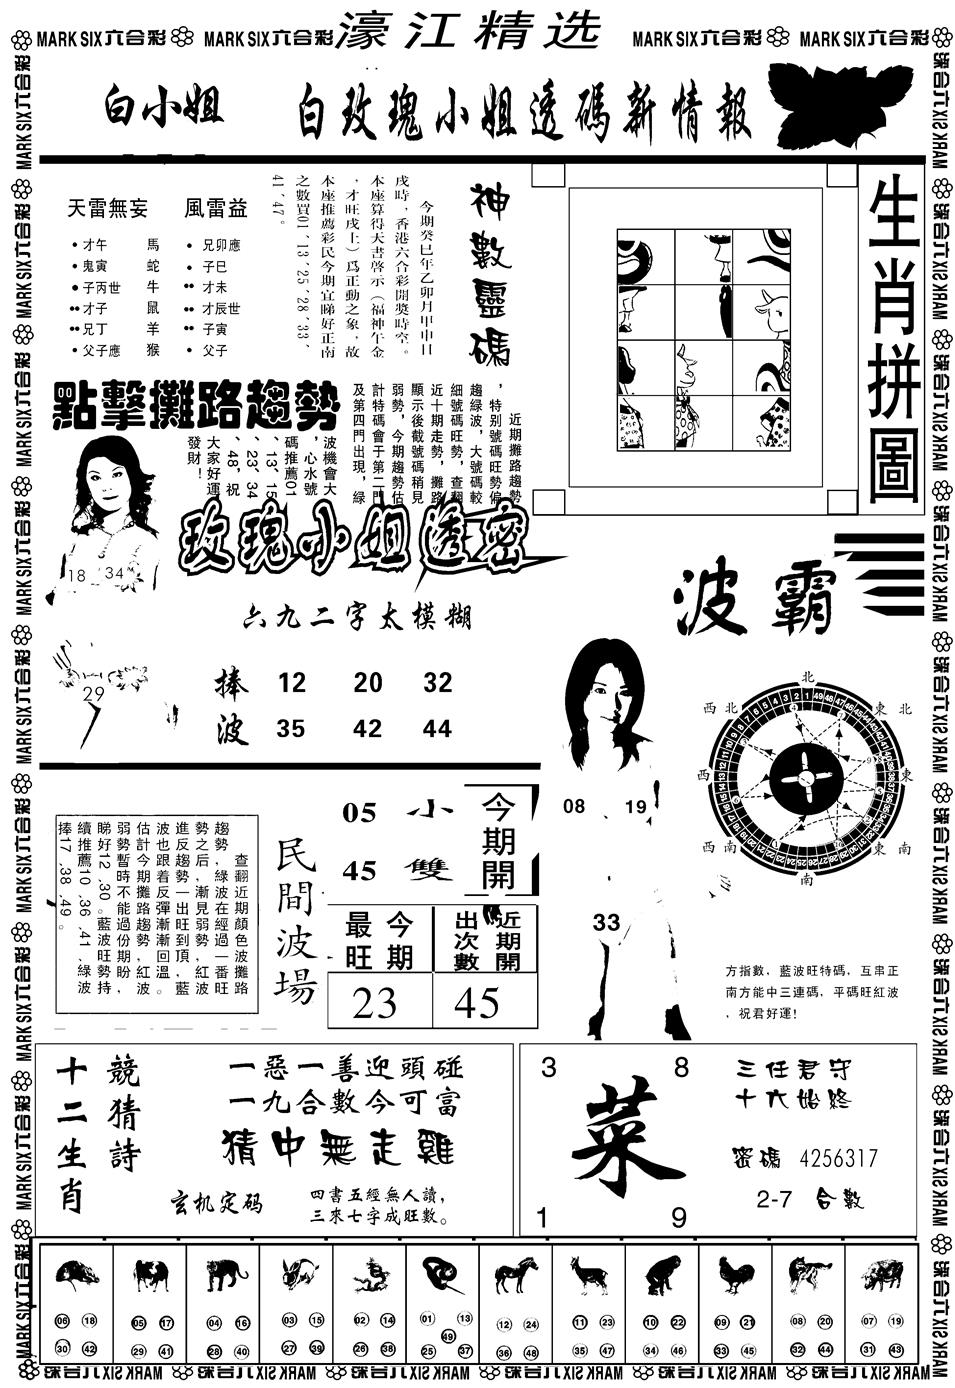 MARK SIX六合彩 MARK SIX六合彩 濠江精选 MARK SIX六合彩 MARK SIX六合彩
白小姐 白玫瑰小姐透碼新情報
天雷無妄 風雷益
才午 馬 兄卯應
鬼寅 蛇 子巳
子丙世 牛 才未
才子 鼠 才辰世
兄丁 羊 子寅
父子應 猴 父子
神數靈碼
今期癸巳年乙卯月甲申日
戌時，香港六合彩開獎時空。
本座算得天書啓示（福神午金
，才旺戌上）爲正動之象，故
本座推薦彩民今期宜睇好正南
之數買01、13、25、28、33、
41、47。
生肖拼圖
點擊攤路趨勢
近期攤路趨勢
，特别號碼旺勢偏
趨綠波，大號碼較
細號碼旺勢，查翻
近十期走勢，攤路
顯示後截號碼稍見
弱勢，今期趨勢估
計特碼會于第二門
及第四門出現，綠
波機會大
，心水號
碼推薦01
、13、15
、23、34
、48，祝
大家好運
發財！
18 34
29
玫瑰小姐透密
六九二字太模糊
捧 12 20 32
波 35 42 44
波霸
北
西北 東北
西 東
西南 東南
南
08 19
33
方指數，藍波旺特碼，互串正
南方能中三連碼，平碼旺紅波
，祝君好運！
查翻近期顏色波攤路
趨勢，綠波在經過一番旺
勢之后，漸見弱勢，紅波
進反趨勢一出旺到頂，藍
波也跟着反彈漸漸回溫。
估計今期攤路趨勢紅波
弱勢暫時不能過份期盼，
睇好12、30。藍波旺勢持
續推薦10、36、41、綠波
捧17、38、49。
民間波場
05 小
45 雙
今期開
今期最旺
近期開出次數
23 45
競猜詩
十二生肖
一惡一善迎頭碰
一九合數今可富
猜中無走雞
玄机定码
四書五經無人讀，
三來七字成旺數。
3 8
菜
1 9
三任君守
十六始終
密碼 4256317
2-7 合數
06 18 05 17 04 16 03 15 02 14 01 13 12 24 11 23 10 22 09 21 08 20 07 19
49
30 42 29 41 28 40 27 39 26 38 25 37 36 48 35 47 34 46 33 45 32 44 31 43